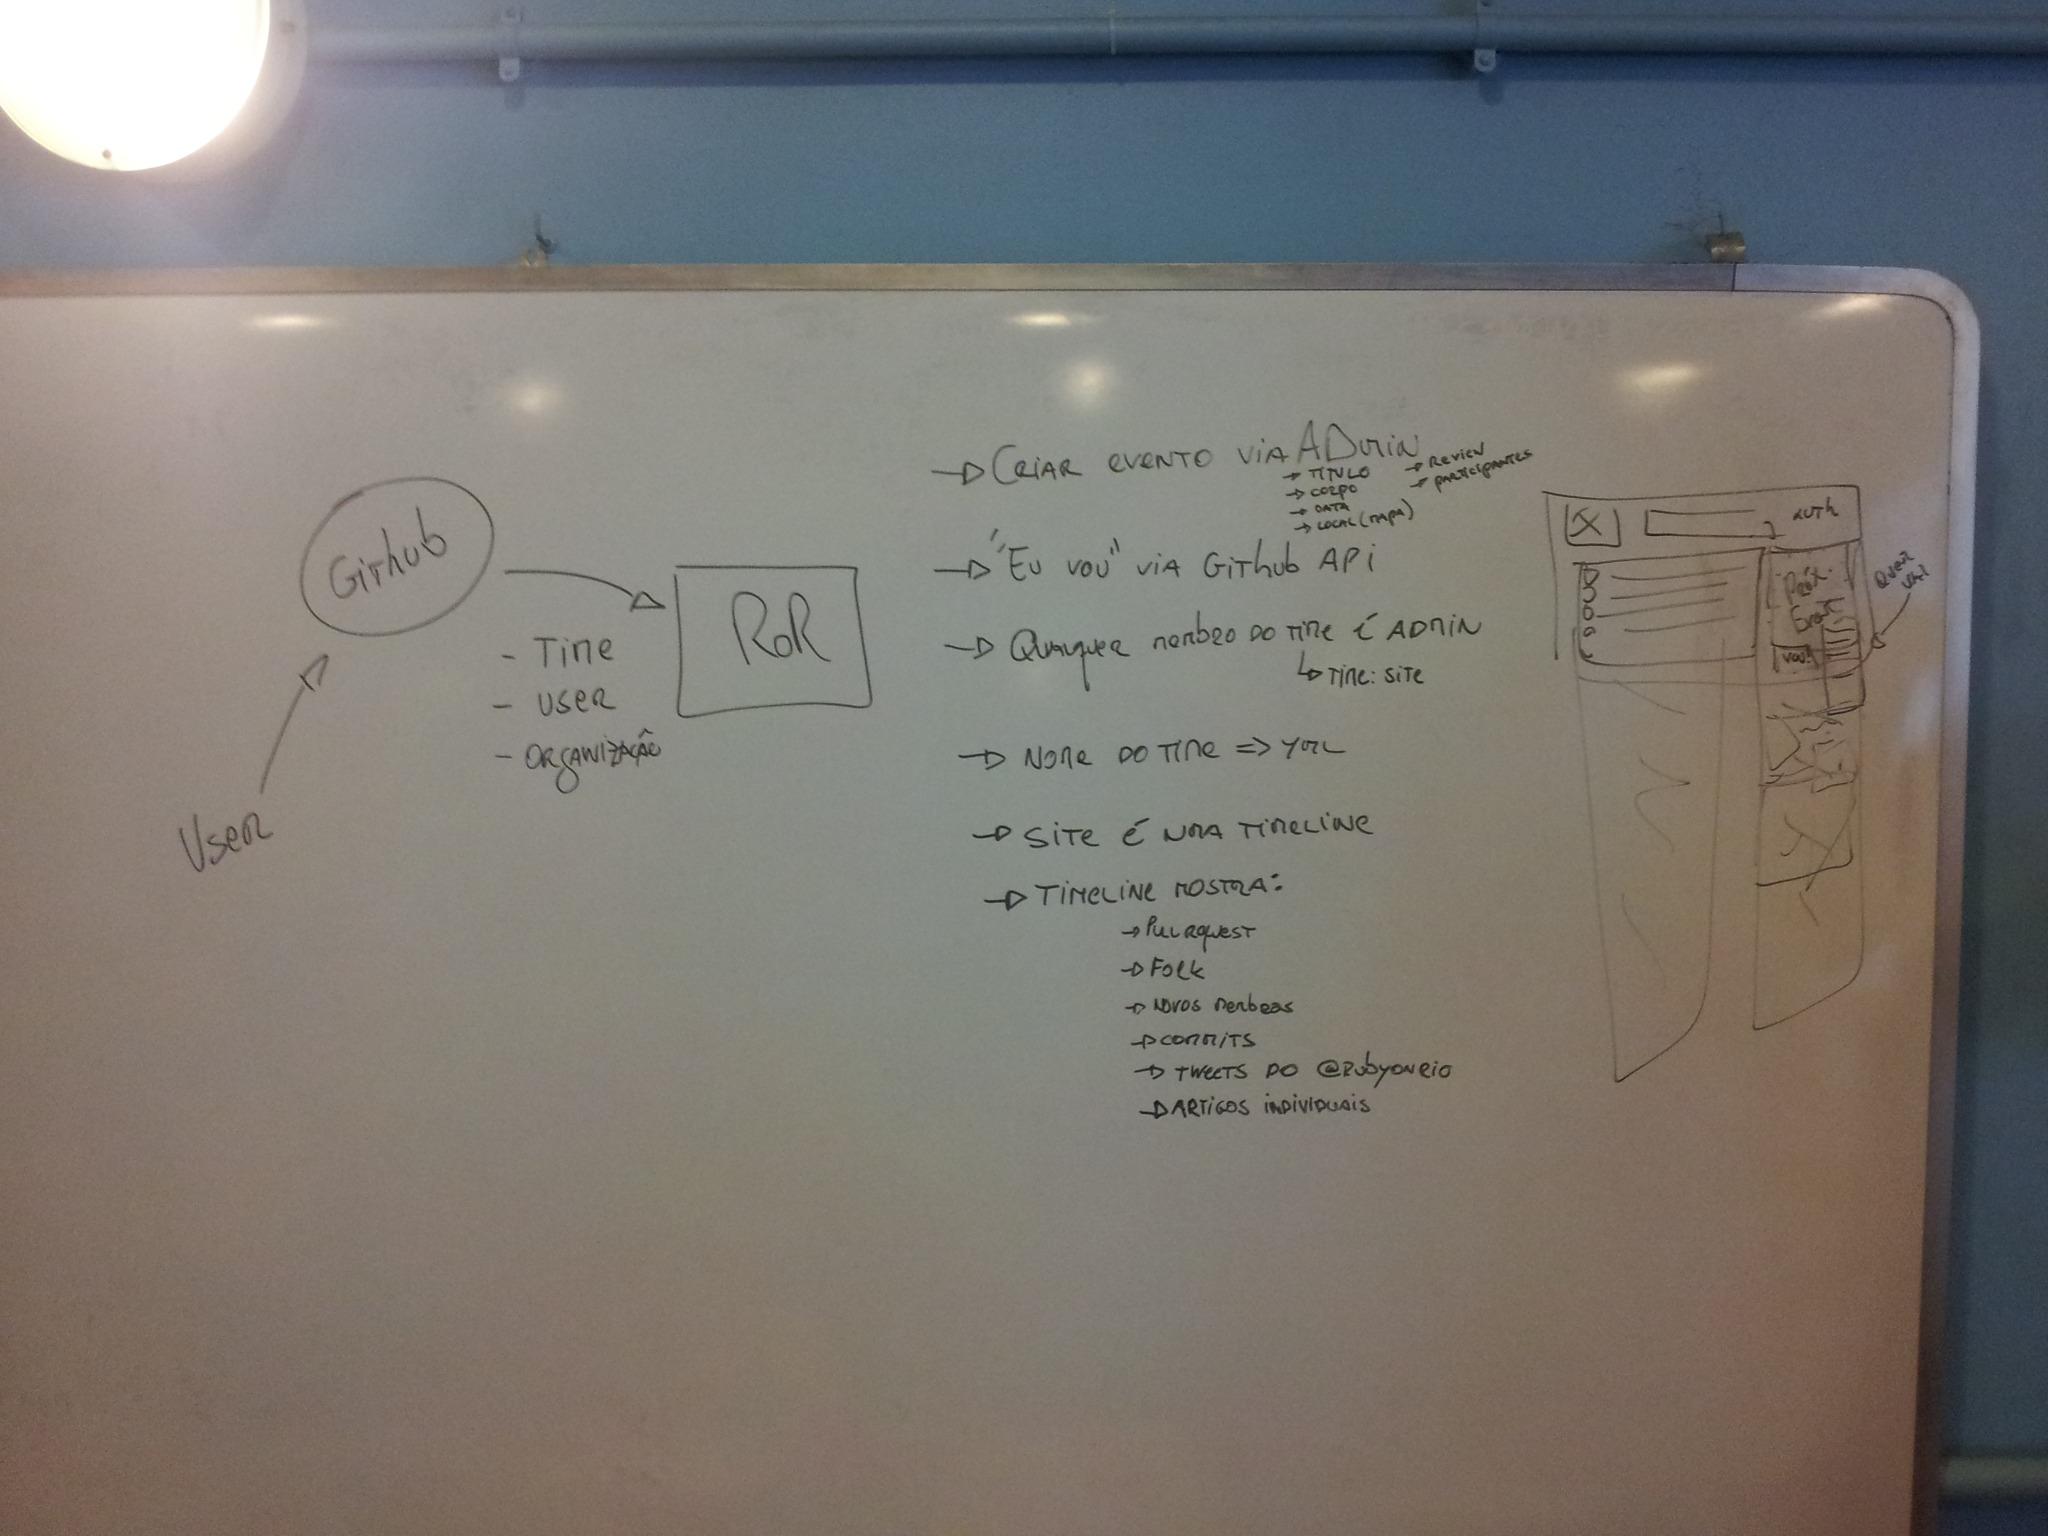 Github
User
- Time
- User
- Organização
RoR
Criar evento via Admin
Título
Corpo
Data
Local (mapa)
Review
Participantes
"Eu vou" via Github API
Qualquer membro do time é admin
Time: site
Nome do time => YML
Site é uma timeline
Timeline mostra:
Pull rquest
Fork
Novos membros
Commits
Tweets do @rubyonrio
Artigos individuais
Auth
Próx.
Event
Vou!
Quem
vai